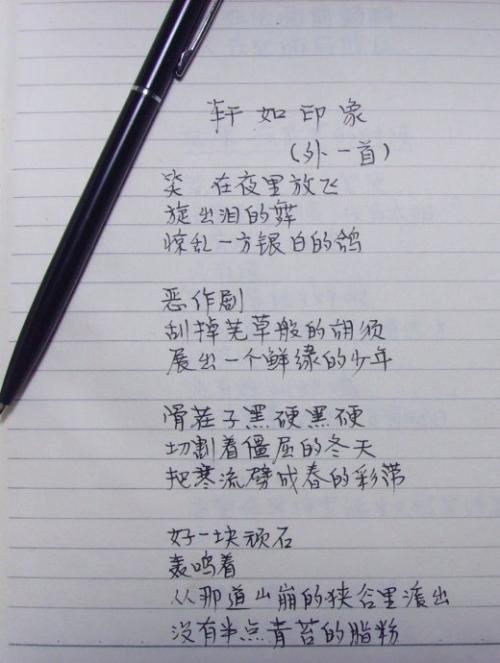 轩如印象
（外一首）
笑 在夜里放飞
旋出泪的舞
惊乱一方银白的鸽
恶作剧
刮掉芜草般的胡须
展出一个鲜绿的少年
骨茬子黑硬黑硬
切割着僵屈的冬天
把寒流劈成春的彩带
好一块顽石
轰鸣着
从那道山崩的狭谷里滚出
没有半点青苔的脂粉